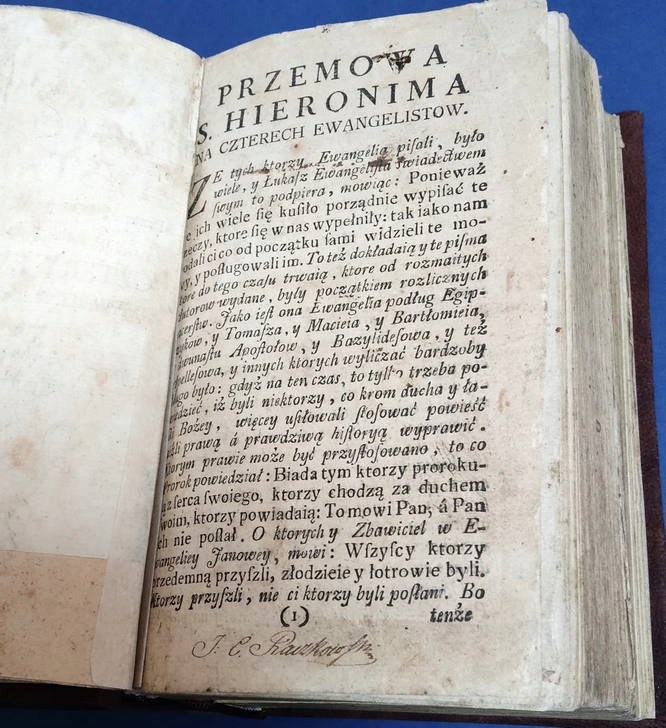 PRZEMOWA
S. HIERONIMA
NA CZTERECH EWANGELISTOW.
ZE tych ktorzy Ewangelią piſali, było
wiele, y Łukaſz Ewangeliſta świadectwem
ſwym to podpiera, mowiąc: Ponieważ
ich wiele ſię kuſiło porządnie wypiſać te
rzeczy, ktore ſię w nas wypełniły: tak iako nam
podali ci co od początku ſami widzieli te mo-
wy, y poſługowali im. To też dokładaią y te piſma
ktore do tego czaſu trwaią, ktore od rozmaitych
Autorow wydane, były początkiem rozlicznych
kacerſtw. Jako ieſt ona Ewangelia podług Egip-
y Tomaſza, y Macieia, y Bartłomieia,
dwunaſtu Apoſtołow, y Bazylideſowa, y też
Apelleſowa, y innych ktorych wyliczać bardzoby
długo było: gdyż na ten czas, to tylko trzeba po-
wiedzieć, iż byli niektorzy, co krom ducha y ła-
ſki Bożey, więcey uſiłowali ſtoſować powieść
niżli prawą á prawdziwą hiſtoryą wyprawić.
Ktorym prawie może być przyſtoſowano, to co
Prorok powiedział: Biada tym ktorzy proroku-
ią z ſerca ſwoiego, ktorzy chodzą za duchem
ſwoim, ktorzy powiadaią: To mowi Pan, á Pan
ich nie poſłał. O ktorych y Zbawiciel w E-
wangeliey Janowey, mowi: Wſzyſcy ktorzy
przedemną przyſzli, złodzieie y łotrowie byli.
Ktorzy przyſzli, nie ci ktorzy byli poſłani. Bo
(1) tenże
J. C. Raczkowſki